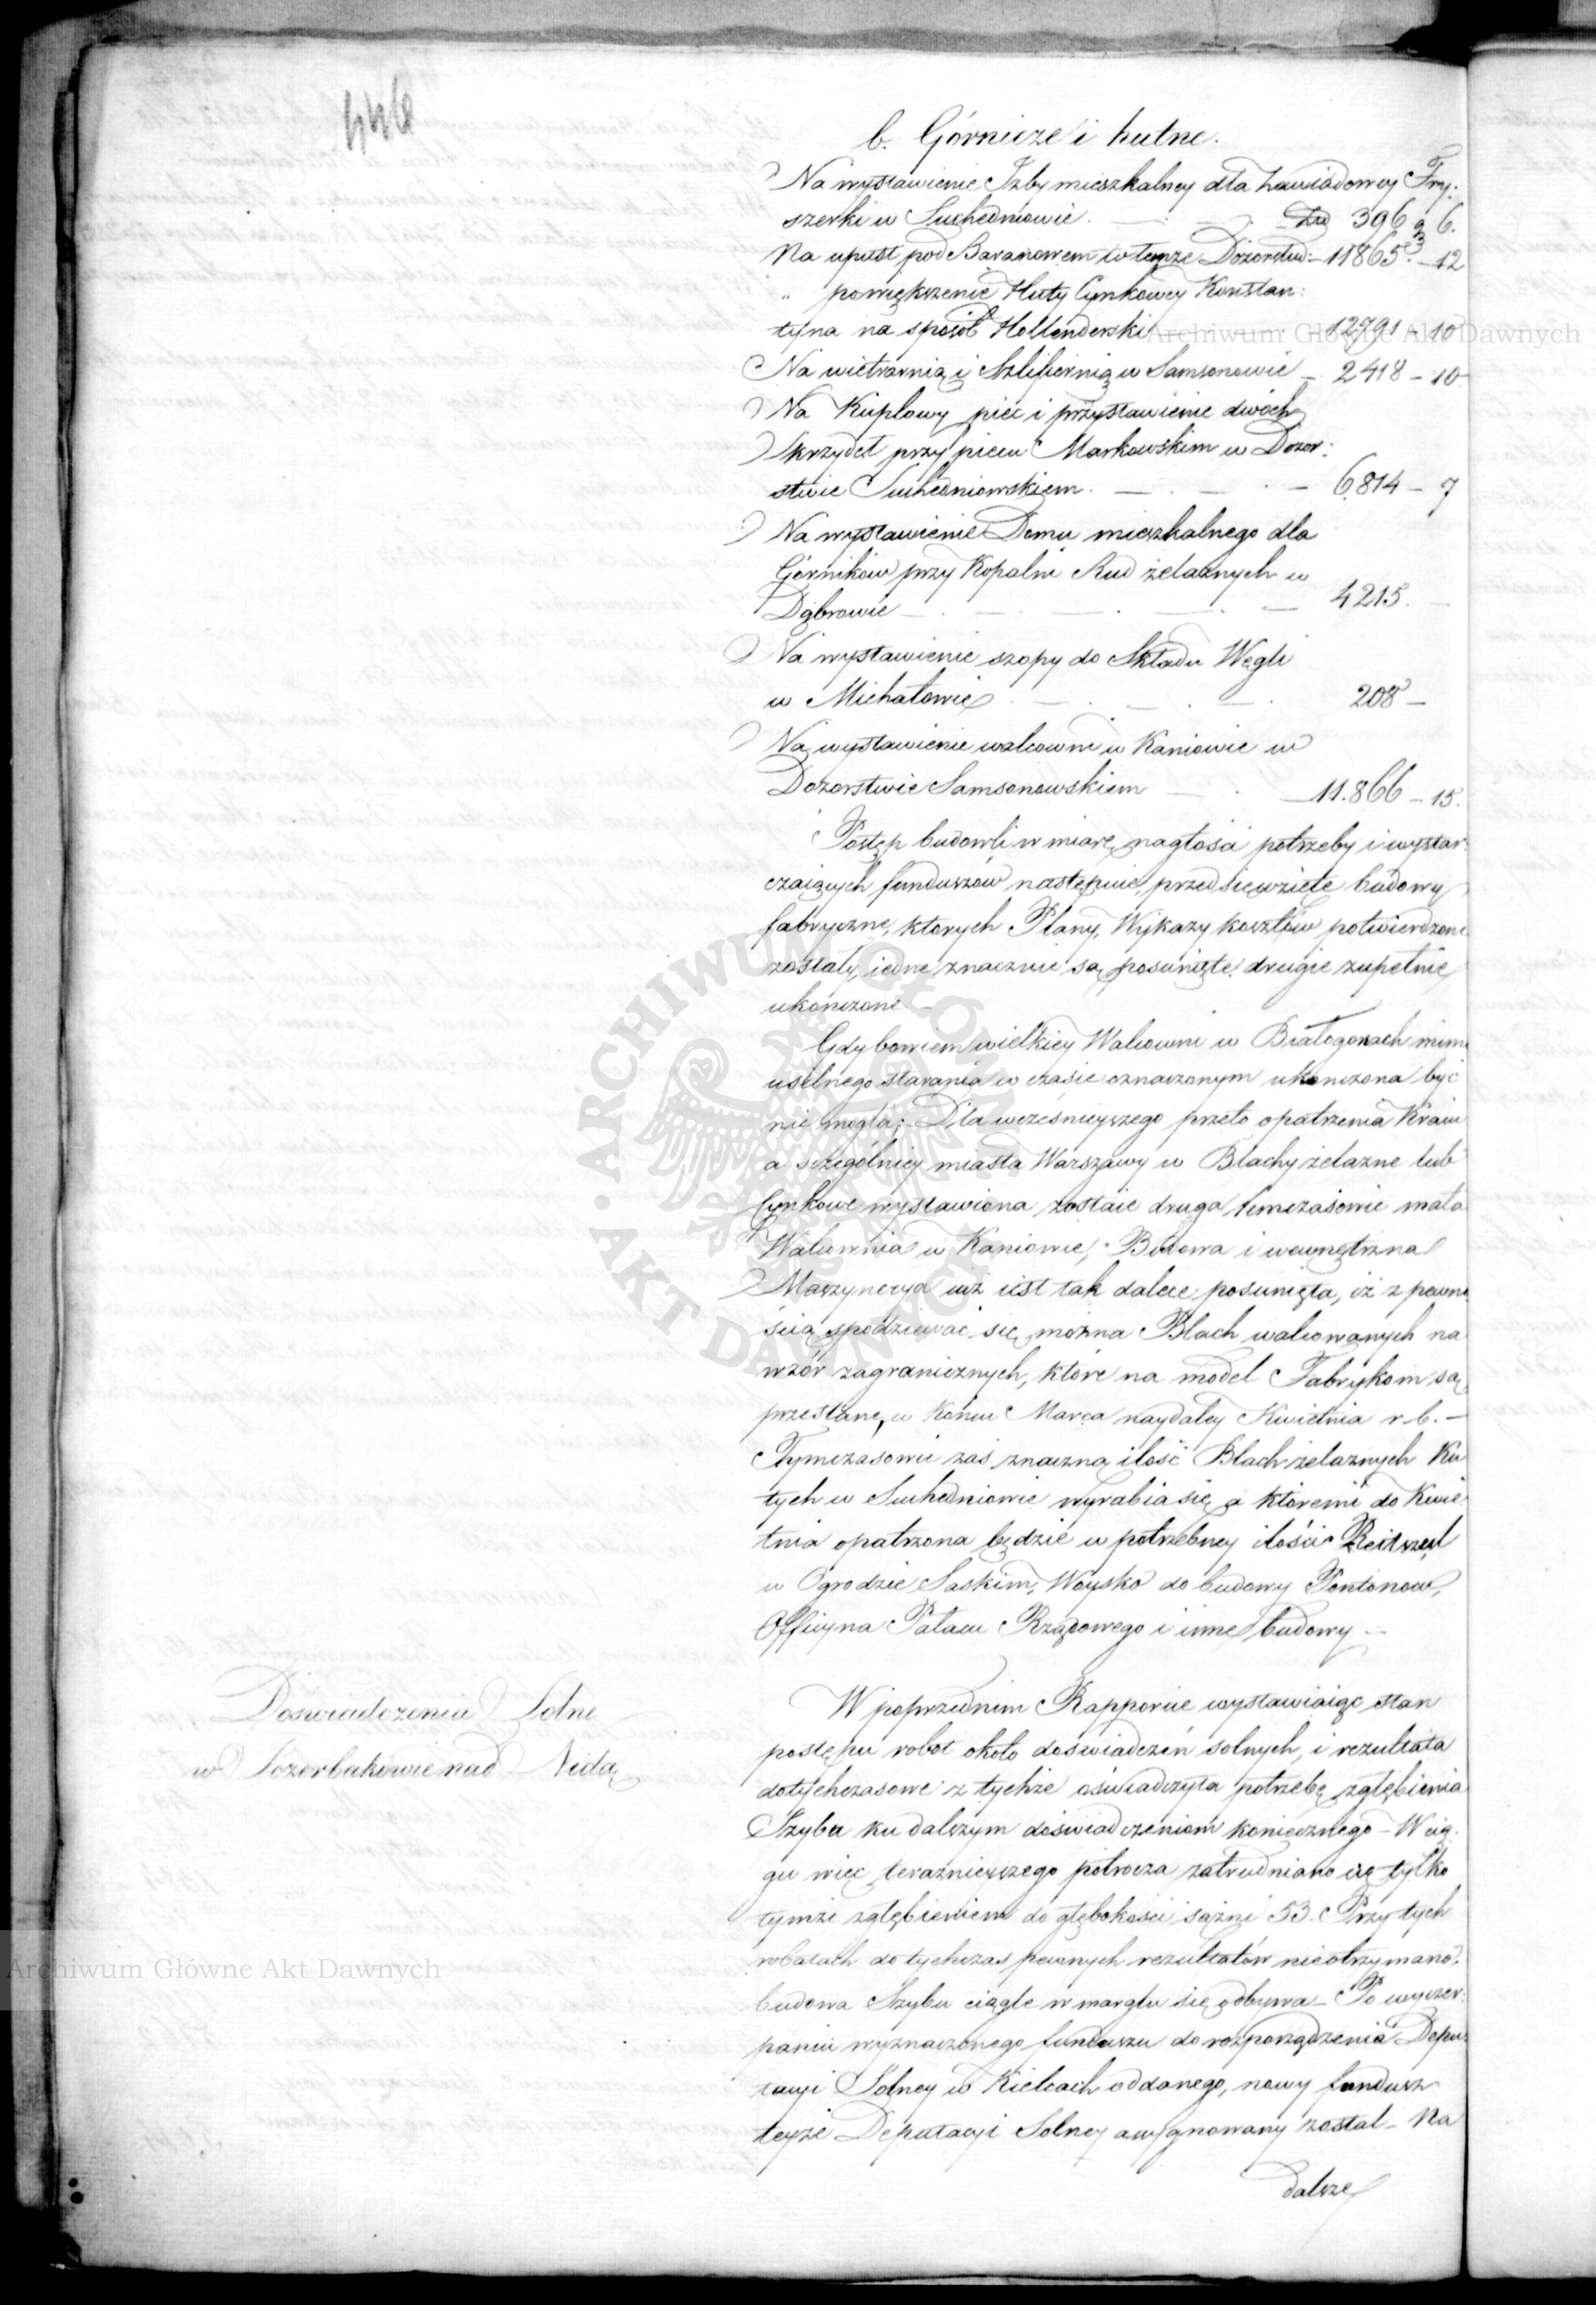 446
b. Górnicze i hutne.
Na wystawienie Izby mieszkalney dla Zawiadowcy Fry:
szerki w Suchedniowie. — złp 396 g 6.
Na upust pod Baranowem w temże Dozorstwie — 11865. — 12
" powiększenie Huty Cynkowey Konstan:
tyna na sposób Hollenderski — 12791 — 10
Na wietrarnią i Szlifiernią w Samsonowie — 2418 — 10
Na Kuplowy piec i przystawienie dwóch
Skrzydeł przy piecu Markowskim w Dozor:
stwie Suchedniowskiem. — 6.814 — 7
Na wystawienie Domu mieszkalnego dla
Górników przy Kopalni Rud żelaznych w
Dąbrowie — 4215. —
Na wystawienie szopy do Składu Węgli
w Michałowie — 208 —
Na wystawienie walcowni w Kaniowie w
Dozorstwie Samsonowskiem — 11.866 — 15.
Postęp budowli w miarę nagłości potrzeby i wystar:
czaiących funduszów następnie przedsięwzięte budowy
fabryczne, ktorych Plany, Wykazy kosztów potwierdzone
zostały, iedne znacznie są posunięte, drugie zupełnie
ukończone —
Gdy bowiem wielkiey Walcowni w Białogonach mimo
usilnego starania w czasie oznaczonym ukończona być
nie mogła; Dla wcześnieyszego przeto opatrzenia Kraiu
a szczególniey miasta Warszawy w Blachy żelazne lub
Cynkowe wystawiona zostaie druga tymczasowie mała
Walcownia w Kaniowie, Budowa i wewnętrzna
Maszynerya iuż iest tak dalece posunięta, iż z pewno
ścią spodziewać się można Blach walcowanych na
wzór zagranicznych, które na model Fabrykom są
przesłane, w końcu Marca naydaley Kwietnia r. b. —
Tymczasowie zaś znaczną ilość Blach żelaznych Ku
tych w Suchedniowie wyrabia się, a któremi do Kwie
tnia opatrzona będzie w potrzebney ilości Reitszul
w Ogrodzie Saskim, Woysko do budowy Pontonow,
Officyna Pałacu Rządowego i inne budowy —
Doświadczenia Solne
w Szczerbakowie nad Nidą
W poprzednim Rapporcie wystawiaiąc stan
postępu robot około doświadczeń solnych, i rezultata
dotychczasowe z tychże oświadczyła potrzebę zgłębienia
Szybu ku dalszym doświadczeniom koniecznego — W cią:
gu więc teraznieyszego półrocza zatrudniano się tylko
tymże zgłębieniem do głębokości sążni 53. Przy tych
robotach dotychczas pewnych rezultatów nie otrzymano,
budowa Szybu ciągle w marglu się odbywa — Po wyczer:
paniu wyznaczonego funduszu do rozporządzenia Depu:
tacyi Solney w Kielcach oddanego, nowy fundusz
teyże Deputacyi Solney asygnowany został — Na
dalsze
Archiwum Główne Akt Dawnych
Archiwum Główne Akt Dawnych
ARCHIWUM GŁÓWNE AKT DAWNYCH